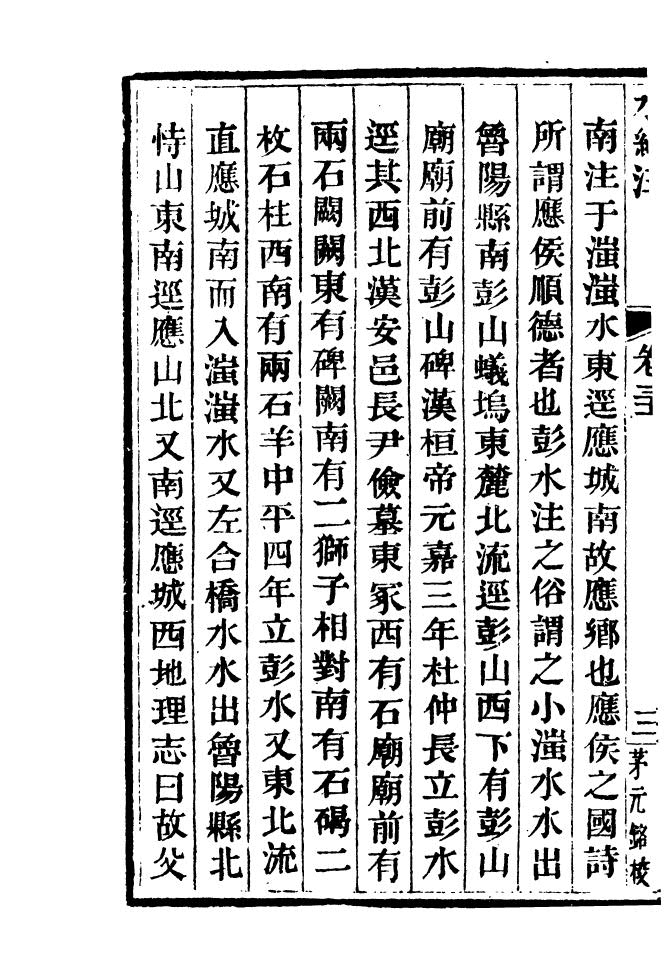 水經注 卷三十一 三 茅元銘校
南注于滍滍水東逕應城南故應鄉也應侯之國詩
所謂應侯順德者也彭水注之俗謂之小滍水水出
魯陽縣南彭山蟻塢東麓北流逕彭山西下有彭山
廟廟前有彭山碑漢桓帝元嘉三年杜仲長立彭水
逕其西北漢安邑長尹儉墓東冢西有石廟廟前有
兩石闕闕東有碑闕南有二獅子相對南有石碣二
枚石柱西南有兩石羊中平四年立彭水又東北流
直應城南而入滍滍水又左合橋水水出魯陽縣北
恃山東南逕應山北又南逕應城西地理志曰故父